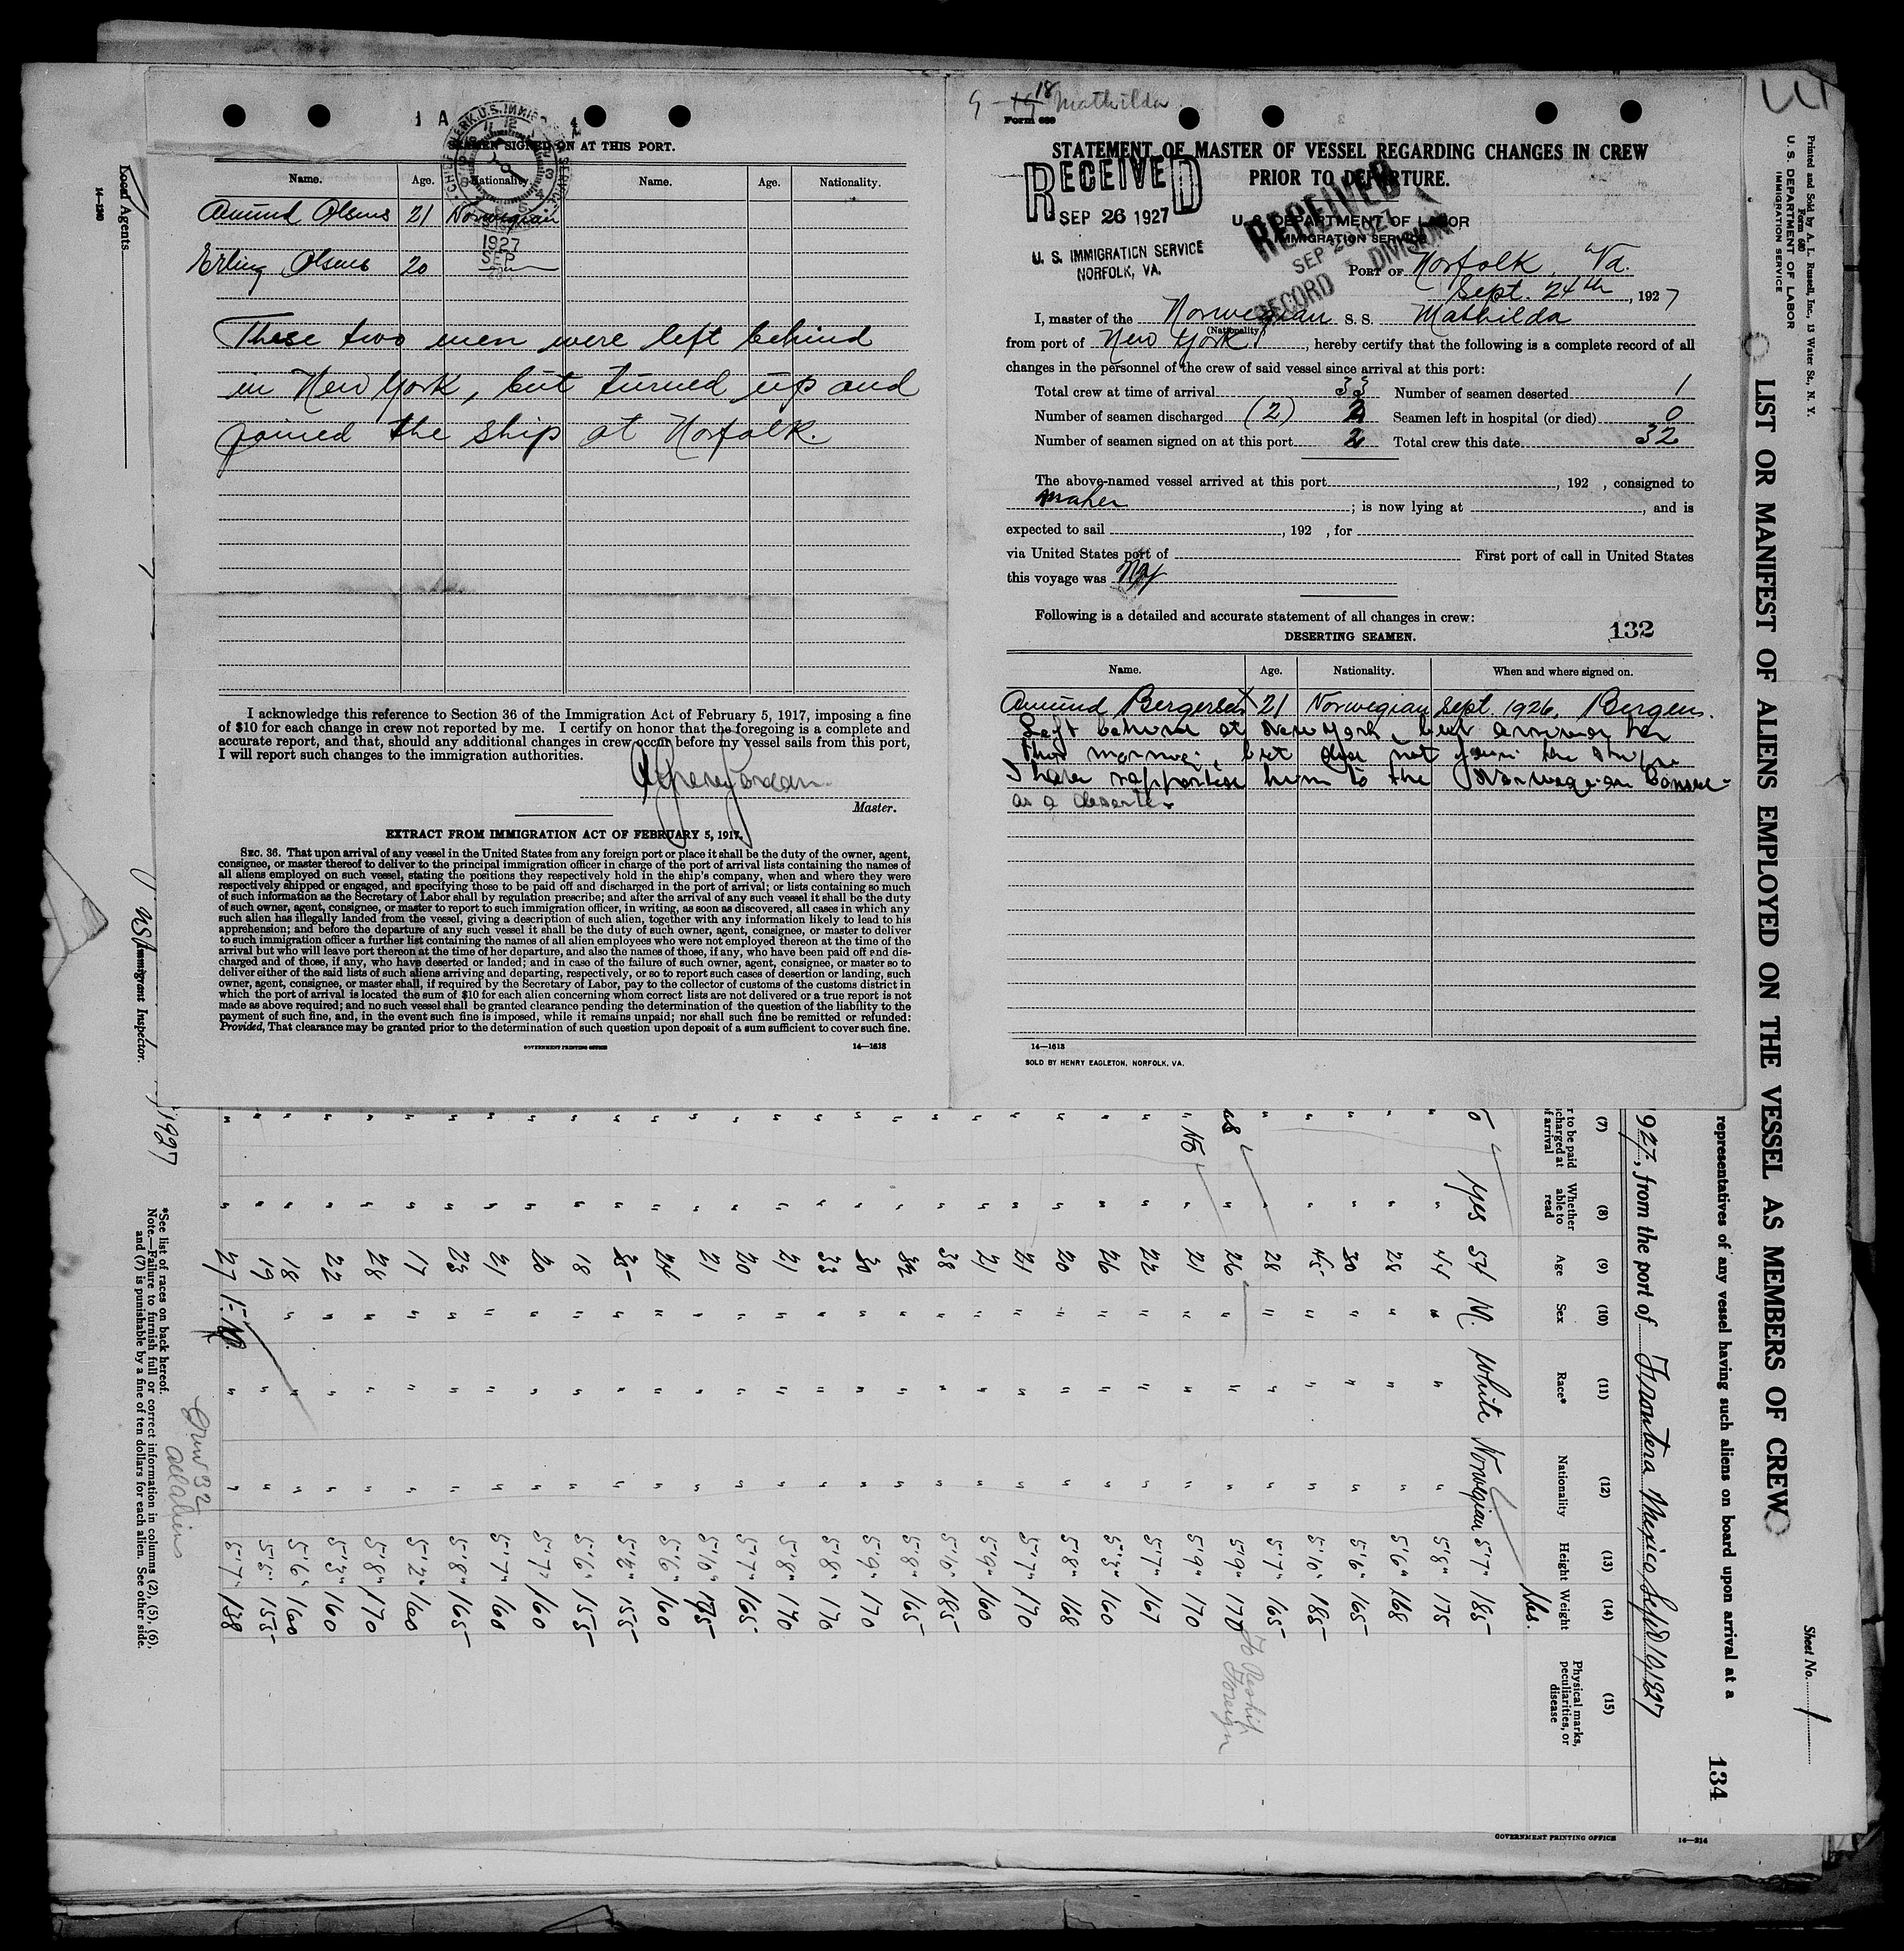 9 - 19 18 Mathilda
Form 680
STATEMENT OF MASTER OF VESSEL REGARDING CHANGES IN CREW
PRIOR TO DEPARTURE.
RECEIVED
SEP 26 1927
U. S. IMMIGRATION SERVICE
NORFOLK, VA.
RECEIVED
SEP 1927
RECORD DIVISION
U. S. DEPARTMENT OF LABOR
IMMIGRATION SERVICE
PORT OF Norfolk, Va.
Sept. 24th, 1927
I, master of the Norwegian S. S. Mathilda
(Nationality)
from port of New York, hereby certify that the following is a complete record of all
changes in the personnel of the crew of said vessel since arrival at this port:
Total crew at time of arrival 33 Number of seamen deserted 1
Number of seamen discharged (2) 2 Seamen left in hospital (or died) 0
Number of seamen signed on at this port 2 Total crew this date 32
The above-named vessel arrived at this port , 192 , consigned to
Maher ; is now lying at , and is
expected to sail , 192 , for
via United States port of First port of call in United States
this voyage was NY
Following is a detailed and accurate statement of all changes in crew:
DESERTING SEAMEN.
132
Name. Age. Nationality. When and where signed on.
Amund Bergersen X 21 Norwegian Sept. 1926, Bergen.
Left behind at New York, but
this morning, but does not join the
I have him to the Norwegian Consul
as a deserter
14—1613
SOLD BY HENRY EAGLETON, NORFOLK, VA.
SEAMEN SIGNED ON AT THIS PORT.
CHIEF CLERK, U.S. IMMIG. SERVICE
1927
SEP
Name. Age. Nationality. Name. Age. Nationality.
Amund Olsens 21 Norwegian
Erling Olsens 20 —"—
These two men were left behind
in New York, but turned up and
joined the ship at Norfolk.
I acknowledge this reference to Section 36 of the Immigration Act of February 5, 1917, imposing a fine
of $10 for each change in crew not reported by me. I certify on honor that the foregoing is a complete and
accurate report, and that, should any additional changes in crew occur before my vessel sails from this port,
I will report such changes to the immigration authorities.
Master.
EXTRACT FROM IMMIGRATION ACT OF FEBRUARY 5, 1917.
SEC. 36. That upon arrival of any vessel in the United States from any foreign port or place it shall be the duty of the owner, agent,
consignee, or master thereof to deliver to the principal immigration officer in charge of the port of arrival lists containing the names of
all aliens employed on such vessel, stating the positions they respectively hold in the ship's company, when and where they were
respectively shipped or engaged, and specifying those to be paid off and discharged in the port of arrival; or lists containing so much
of such information as the Secretary of Labor shall by regulation prescribe; and after the arrival of any such vessel it shall be the duty
of such owner, agent, consignee, or master to report to such immigration officer, in writing, as soon as discovered, all cases in which any
such alien has illegally landed from the vessel, giving a description of such alien, together with any information likely to lead to his
apprehension; and before the departure of any such vessel it shall be the duty of such owner, agent, consignee, or master to deliver
to such immigration officer a further list containing the names of all alien employees who were not employed thereon at the time of the
arrival but who will leave port thereon at the time of her departure, and also the names of those, if any, who have been paid off and dis-
charged and of those, if any, who have deserted or landed; and in case of the failure of such owner, agent, consignee, or master so to
deliver either of the said lists of such aliens arriving and departing, respectively, or so to report such cases of desertion or landing, such
owner, agent, consignee, or master shall, if required by the Secretary of Labor, pay to the collector of customs of the customs district in
which the port of arrival is located the sum of $10 for each alien concerning whom correct lists are not delivered or a true report is not
made as above required; and no such vessel shall be granted clearance pending the determination of the question of the liability to the
payment of such fine, and, in the event such fine is imposed, while it remains unpaid; nor shall such fine be remitted or refunded:
Provided, That clearance may be granted prior to the determination of such question upon deposit of a sum sufficient to cover such fine.
GOVERNMENT PRINTING OFFICE
14—1613
Printed and Sold by A. L. Russell, Inc., 13 Water St., N. Y.
Form 680
U. S. DEPARTMENT OF LABOR
IMMIGRATION SERVICE
LIST OR MANIFEST OF ALIENS EMPLOYED ON THE VESSEL AS MEMBERS OF CREW
Sheet No. 1
134
representatives of any vessel having such aliens on board upon arrival at a
927, from the port of Frontera Mexico, Sept 10, 1927
(7) (8) (9) (10) (11) (12) (13) (14) (15)
to be paid charged at of arrival
Whether able to read
Age
Sex
Race*
Nationality
Height
Weight
Physical marks, peculiarities, or disease
lbs.
yes 54 M. White Norwegian 5'7" 185
" 44 " " " 5'8" 175
" 28 " " " 5'6" 168
" 30 " " " 5'6" 165
" 45 " " " 5'10" 185
" 28 " " " 5'7" 165
" 26 " " " 5'9" 170 To Reship Foreign
No " 21 " " " 5'9" 170
" 22 " " " 5'7" 167
" 26 " " " 5'3" 160
" 20 " " " 5'8" 168
" 21 " " " 5'7" 170
" 21 " " " 5'9" 160
" 38 " " " 5'10" 185
" 32 " " " 5'8" 165
" 30 " " " 5'9" 170
" 33 " " " 5'8" 170
" 21 " " " 5'8" 170
" 20 " " " 5'7" 165
" 21 " " " 5'10" 175
" 24 " " " 5'6" 160
" 25 " " " 5'2" 155
" 18 " " " 5'6" 155
" 20 " " " 5'7" 160
" 21 " " " 5'7" 160
" 23 " " " 5'8" 165
" 17 " " " 5'2" 160
" 28 " " " 5'8" 170
" 22 " " " 5'3" 160
" 18 " " " 5'6" 160
" 19 " " 5'5" 155
" 27 " " 5'7" 138
Crew 32
all aliens
*See list of races on back hereof.
Note.—Failure to furnish full or correct information in columns (2), (5), (6),
and (7) is punishable by a fine of ten dollars for each alien. See other side.
1927
Immigrant Inspector.
Local Agents
14—1240
GOVERNMENT PRINTING OFFICE
14—214